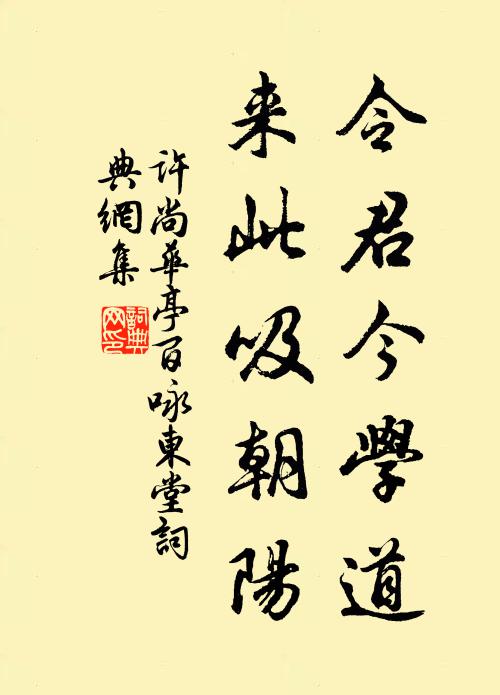 令君今學道
来此吸朝陽
許尚華亭百咏東堂詞
典網集
詞典网印